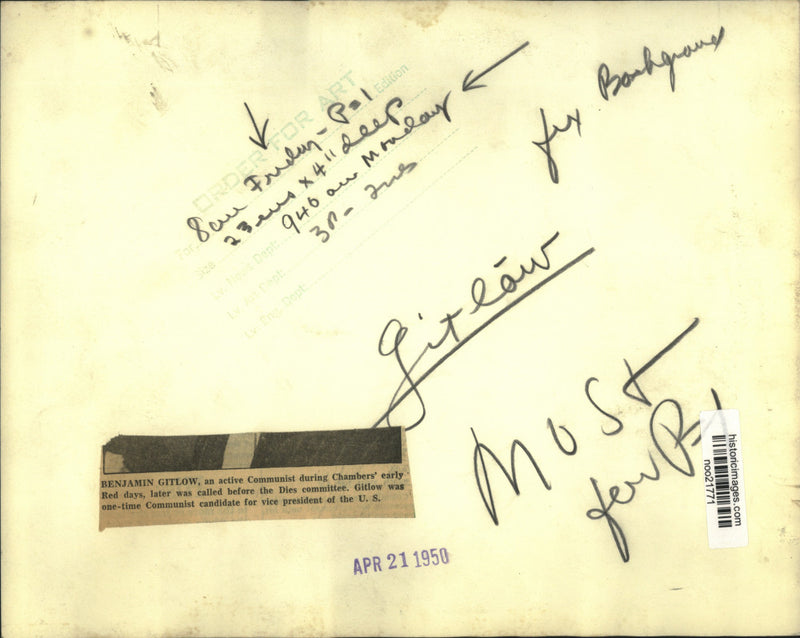 ORDER FOR ART
Edition
8am Friday - P-1
23 ems x 4" deep
940 am Monday
For
Size
Lv. News Dept:
Lv. Art Dept:
Lv. Eng. Dept:
fix Background
Gitlow
MUST
for P-1
BENJAMIN GITLOW, an active Communist during Chambers' early
Red days, later was called before the Dies committee. Gitlow was
one-time Communist candidate for vice president of the U. S.
APR 21 1950
historicimages.com
noo21771